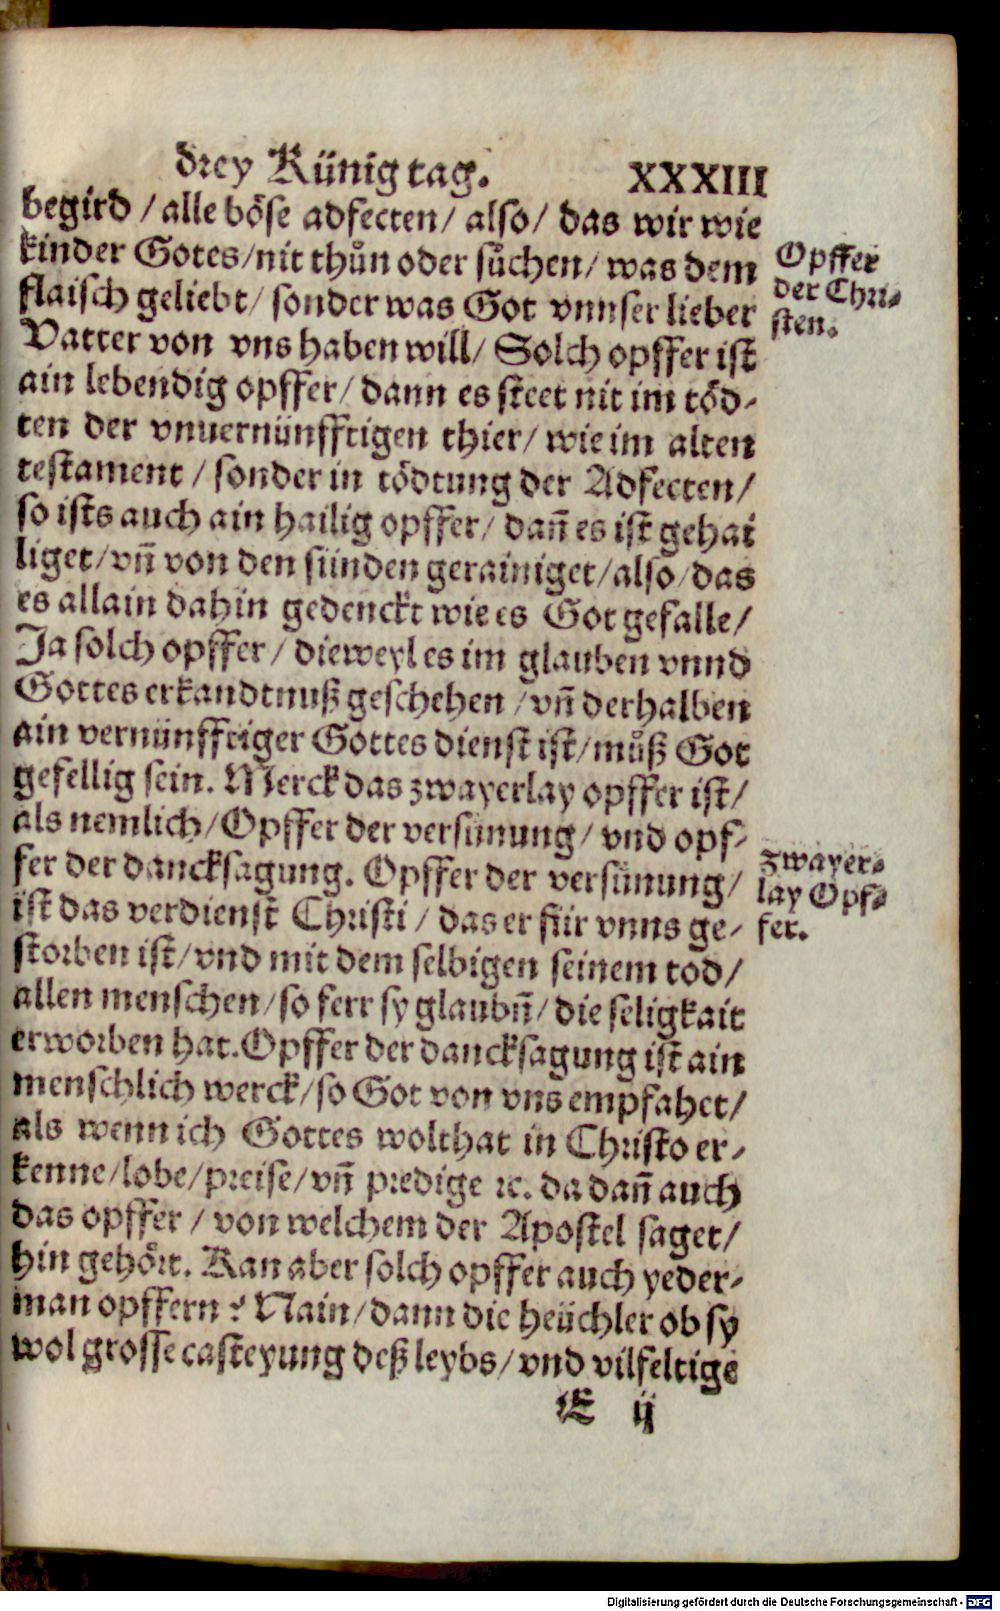 drey Künig tag. XXXIII
begird / alle böse adfecten / also / das wir wie
kinder Gotes / nit thůn oder sůchen / was dem
flaisch geliebt / sonder was Got vnnser lieber
Vatter von vns haben will / Solch opffer ist
ain lebendig opffer / dann es steet nit im töd-
ten der vnuernünfftigen thier / wie im alten
testament / sonder in tödtung der Adfecten /
so ists auch ain hailig opffer / dañ es ist gehai
liget / vñ von den sünden gerainiget / also / das
es allain dahin gedenckt wie es Got gefalle /
Ja solch opffer / dieweyl es im glauben vnnd
Gottes erkandtnuß geschehen / vñ derhalben
ain vernünfftiger Gottes dienst ist / můß Got
gefellig sein. Merck das zwayerlay opffer ist /
als nemlich / Opffer der versünung / vnd opf-
fer der dancksagung. Opffer der versünung /
ist das verdienst Christi / das er für vnns ge-
storben ist / vnd mit dem selbigen seinem tod /
allen menschen / so ferr sy glaubñ / die seligkait
erworben hat. Opffer der dancksagung ist ain
menschlich werck / so Got von vns empfahet /
als wenn ich Gottes wolthat in Christo er-
kenne / lobe / preise / vñ predige ⁊c. da dañ auch
das opffer / von welchem der Apostel saget /
hin gehört. Kan aber solch opffer auch yeder-
man opffern? Nain / dann die heüchler ob sy
wol grosse casteyung deß leybs / vnd vilfeltige
E ij
Opffer
der Chri-
sten.
zwayer-
lay Opf-
fer.
Digitalisierung gefördert durch die Deutsche Forschungsgemeinschaft - DFG